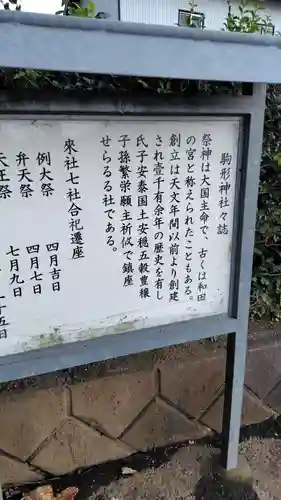 駒形神社々誌
祭神は大国主命で、古くは和田
の宮と称えられたこともある。
創立は天文年間以前より創建
され壹千有余年の歴史を有し
氏子安泰国土安穏五穀豊穣
子孫繁栄願主祈俙で鎮座
せらるる社である。
來社七社合祀遷座
例大祭 四月吉日
弁天祭 四月七日
天祭 七月九日
天王祭 十五日